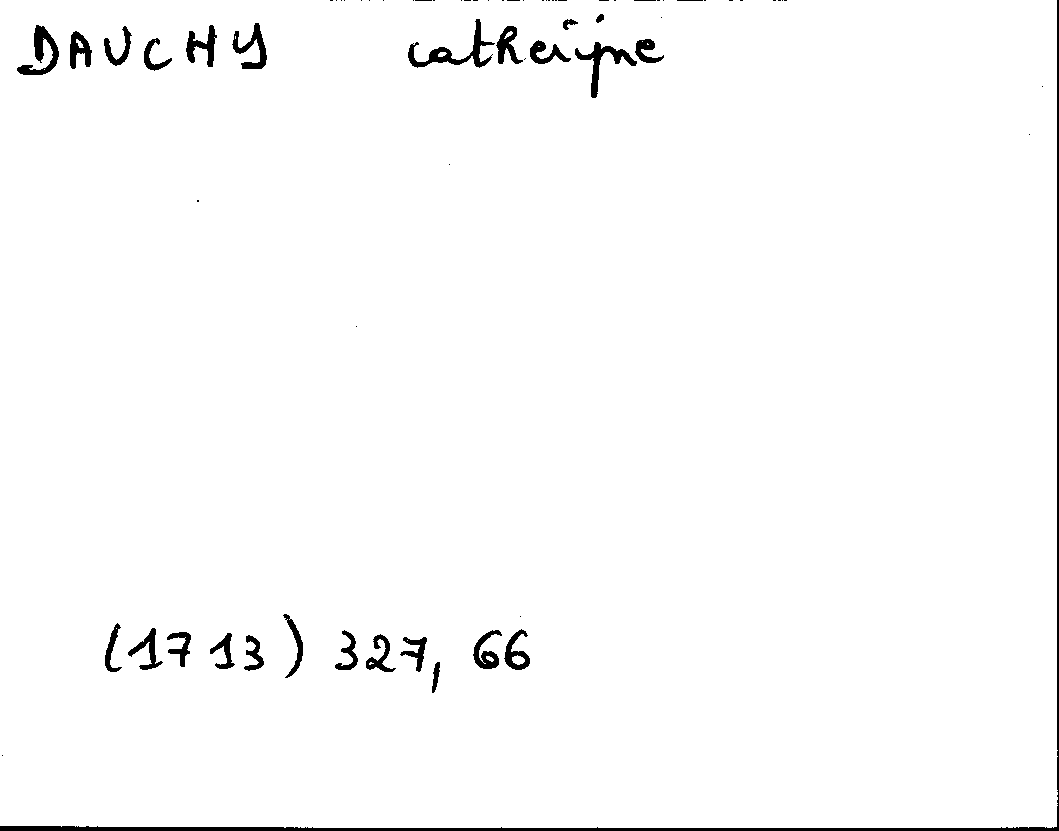 DAUCHY catherijne
(1713) 327, 66